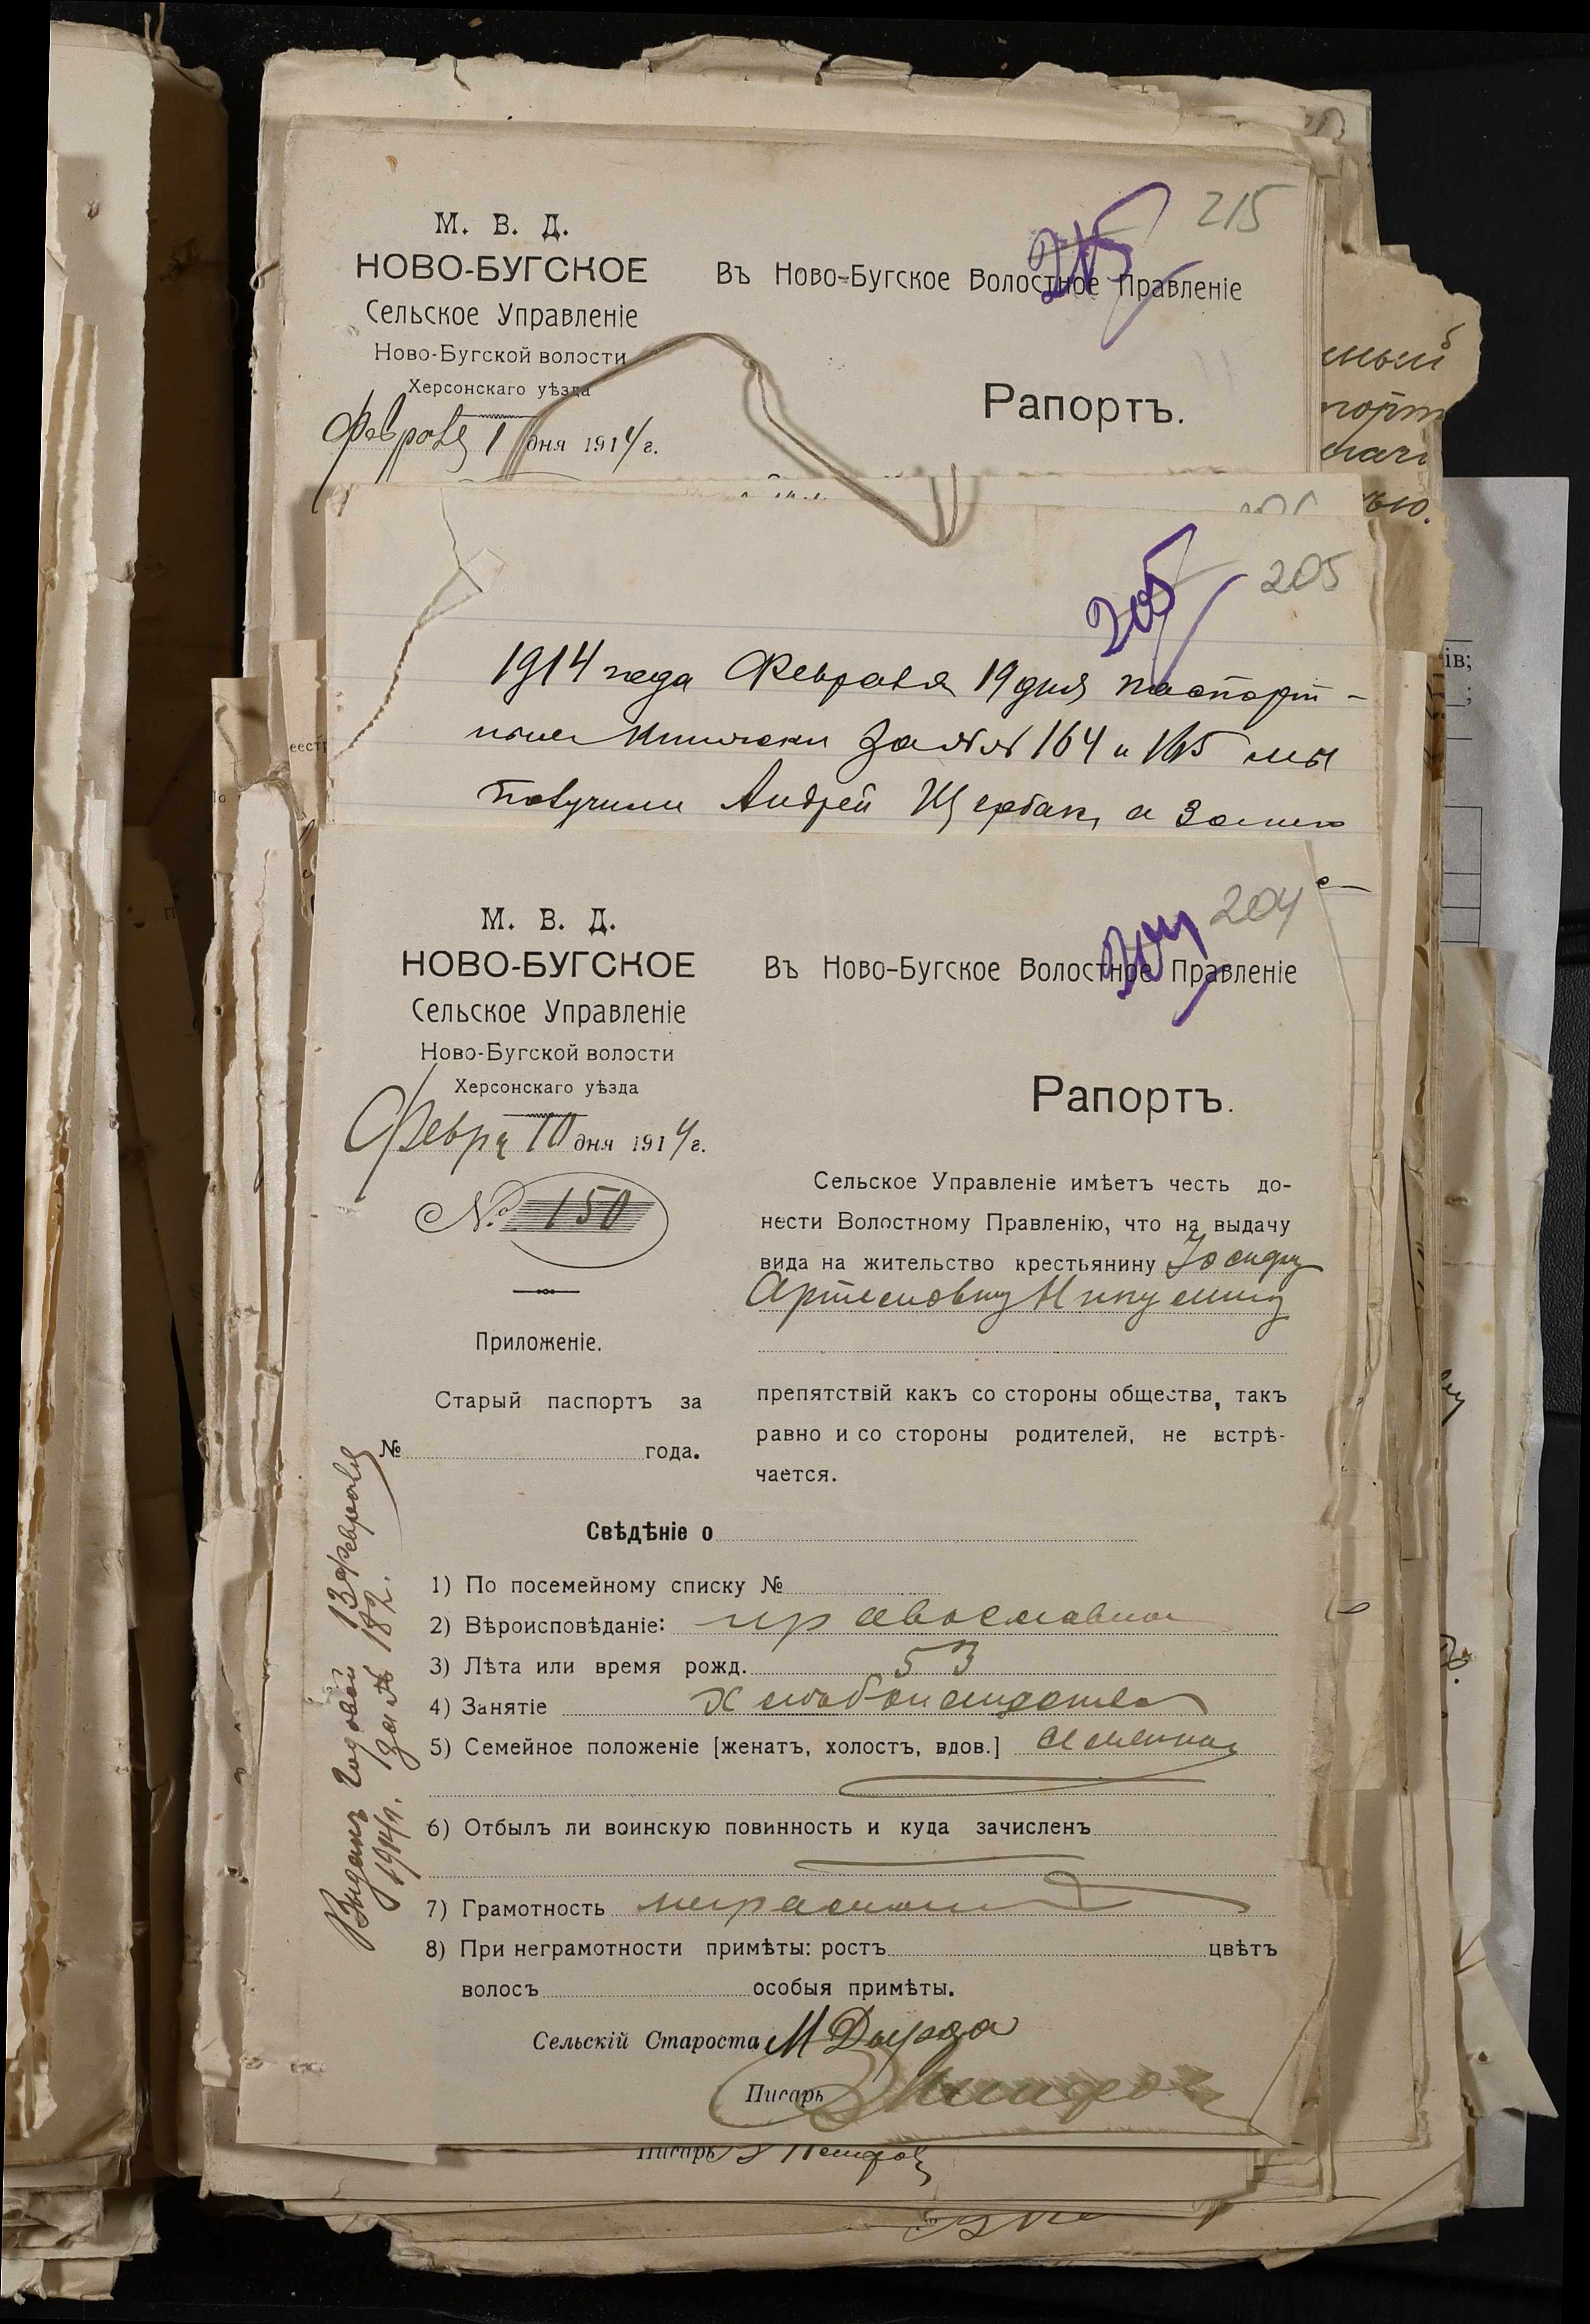 215
215
М. В. Д.
НОВО-БУГСКОЕ
Сельское Управленіе
Ново-Бугской волости
Херсонскаго уѣзда
Февраля 1 дня 1914 г.
Въ Ново-Бугское Волостное Правленіе
Рапортъ.
205
205
1914 года Февраля 19 дня паспорт-
ные книжки за №№ 164 и 165 мы
получили Андрей Щербак, а за
204
204
М. В. Д.
НОВО-БУГСКОЕ
Сельское Управленіе
Ново-Бугской волости
Херсонскаго уѣзда
Февра 10 дня 1914 г.
№ 150
Приложеніе.
Старый паспортъ за
№ года.
Въ Ново-Бугское Волостное Правленіе
Рапортъ.
Сельское Управленіе имѣетъ честь до-
нести Волостному Правленію, что на выдачу
вида на жительство крестьянину Іосифу
Артемовичу Никулину
препятствій какъ со стороны общества, такъ
равно и со стороны родителей, не встрѣ-
чается.
Выданъ годовой 13 февраля
1914 г. за № 182.
Свѣдѣніе о
1) По посемейному списку №
2) Вѣроисповѣданіе: православное
3) Лѣта или время рожд. 53
4) Занятіе
5) Семейное положеніе [женатъ, холостъ, вдов.]
6) Отбылъ ли воинскую повинность и куда зачисленъ
7) Грамотность
8) При неграмотности примѣты: ростъ цвѣтъ
волосъ особыя примѣты.
Сельскій Староста М
Писарь
Писарь